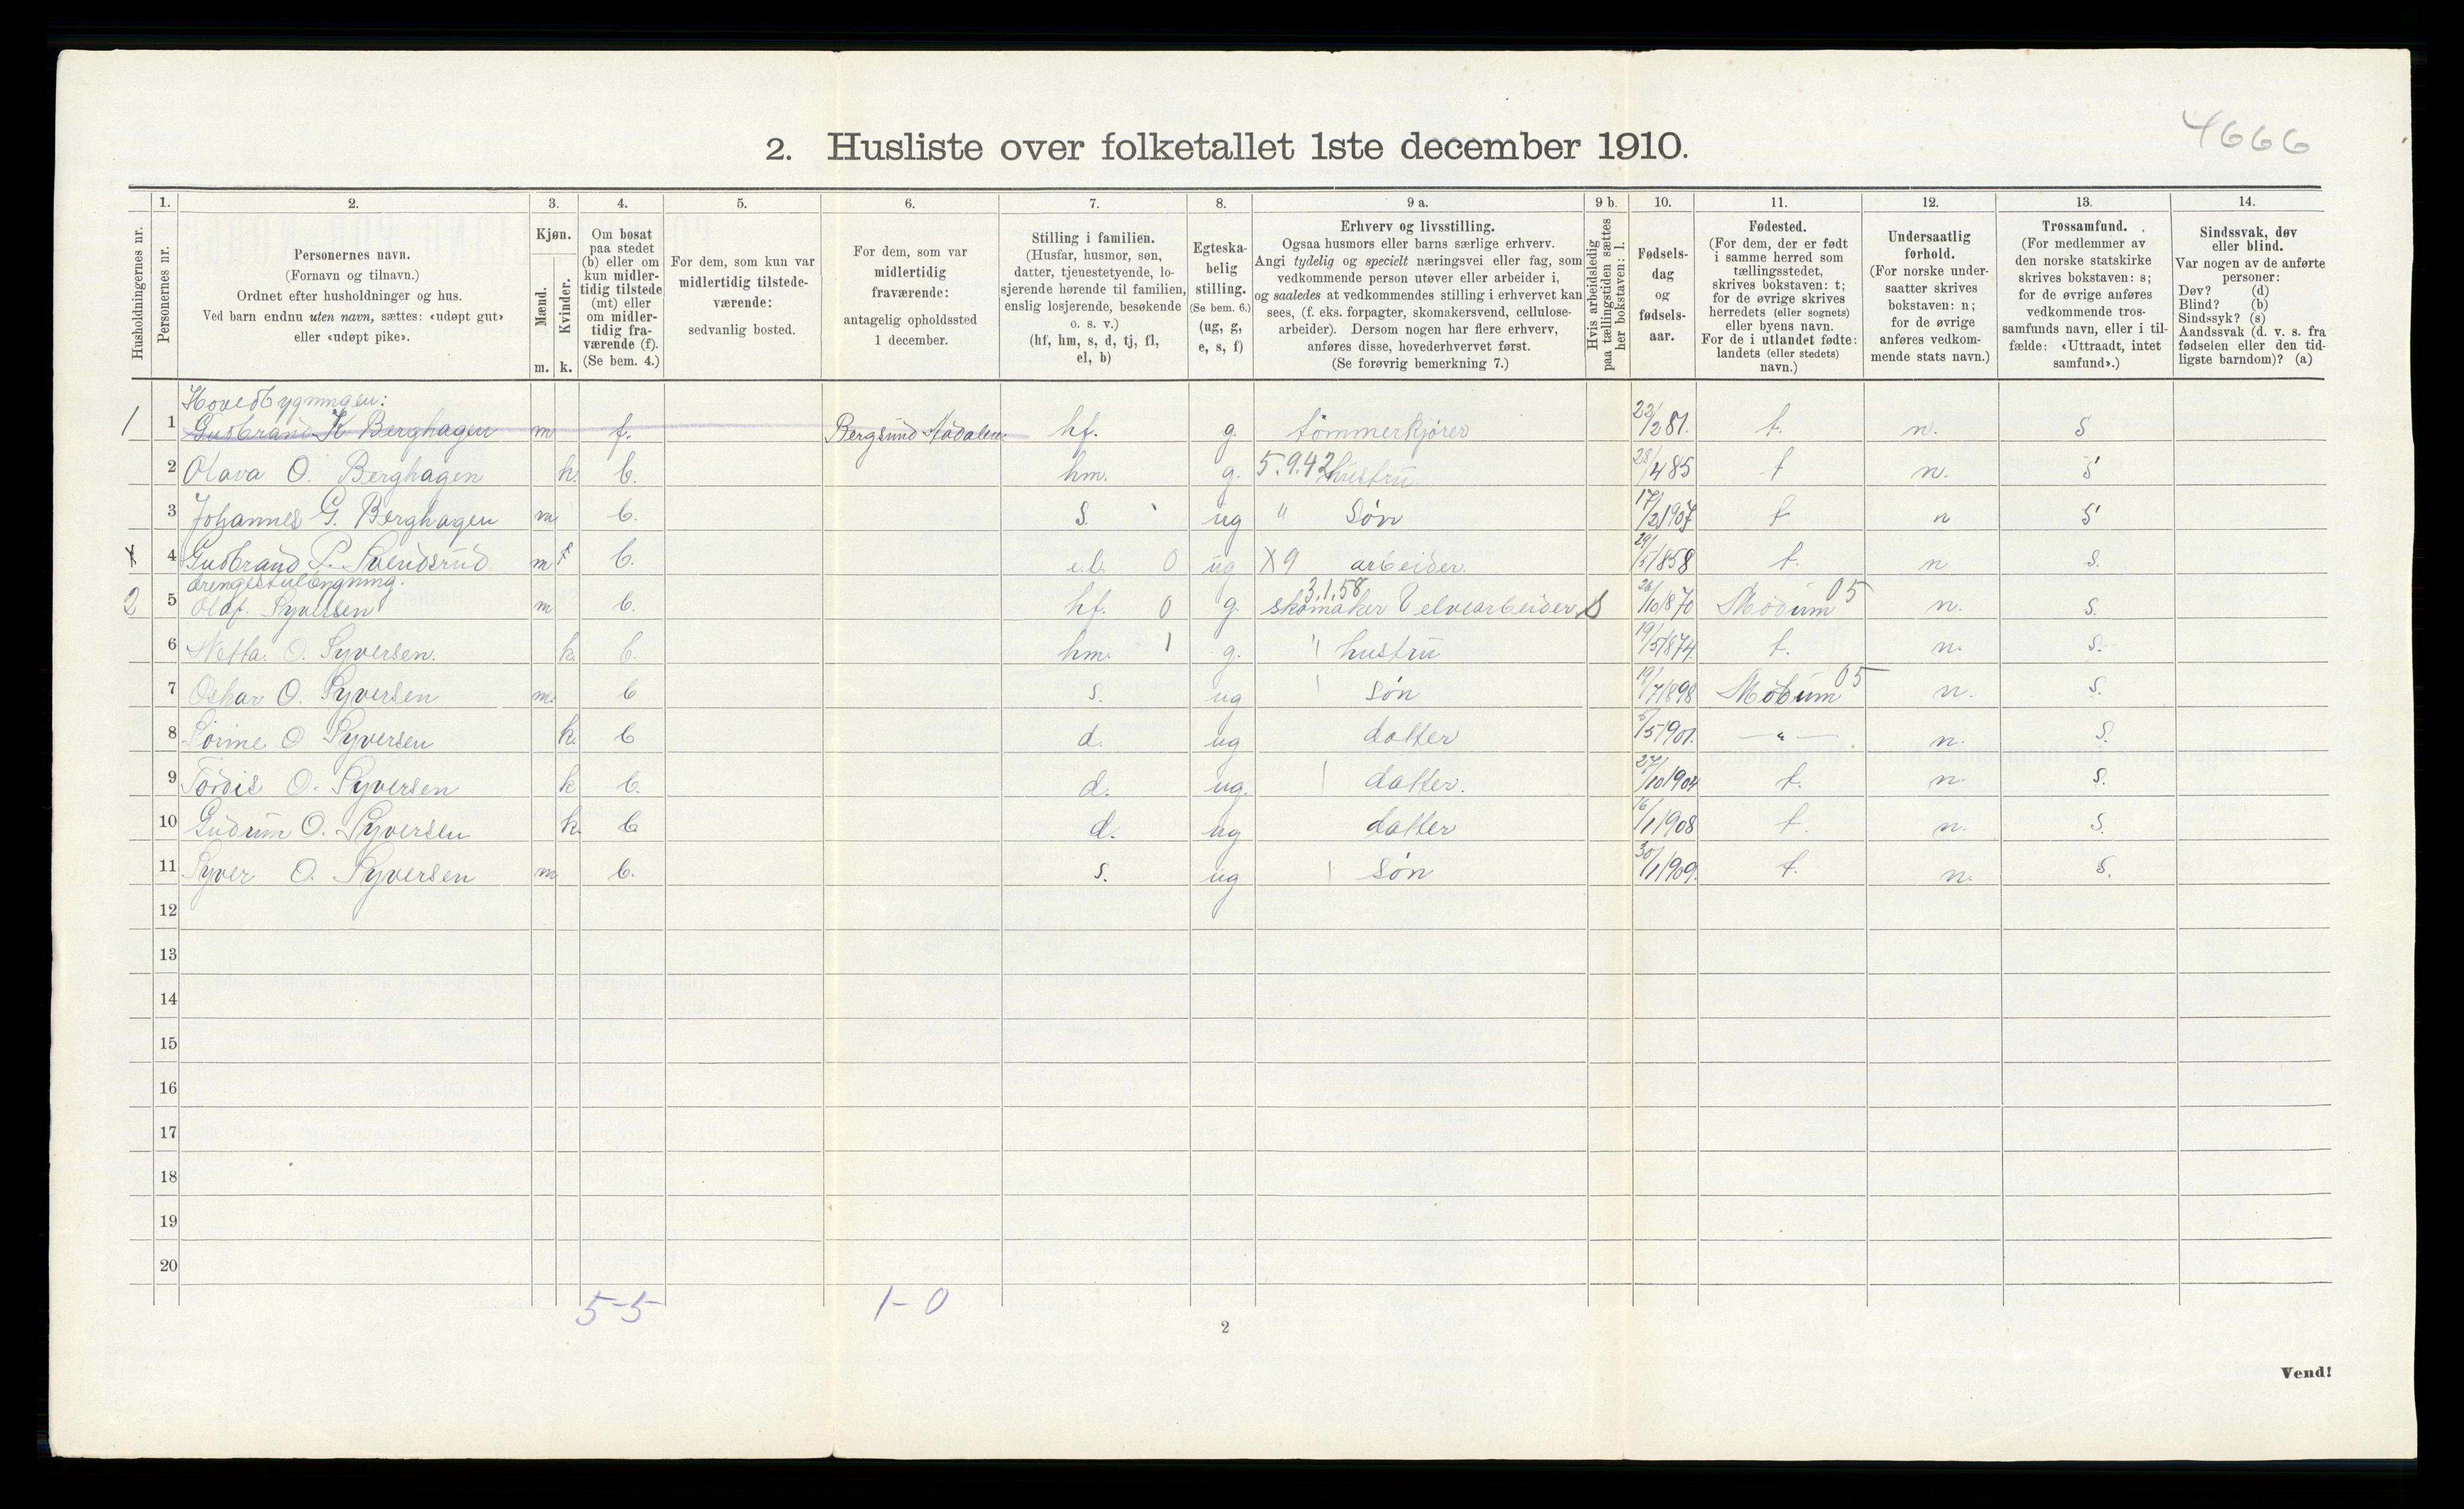 4666
2. Husliste over folketallet 1ste december 1910.
Husholdningernes nr.
1.
Personernes nr.
2.
Personernes navn.
(Fornavn og tilnavn.)
Ordnet efter husholdninger og hus.
Ved barn endnu uten navn, sættes: «udøpt gut»
eller «udøpt pike».
3.
Kjøn.
Mænd.
Kvinder.
m. k.
4.
Om bosat
paa stedet
(b) eller om
kun midler-
tidig tilstede
(mt) eller
om midler-
tidig fra-
værende (f).
(Se bem. 4.)
5.
For dem, som kun var
midlertidig tilstede-
værende:
sedvanlig bosted.
6.
For dem, som var
midlertidig
fraværende:
antagelig opholdssted
1 december.
7.
Stilling i familien.
(Husfar, husmor, søn,
datter, tjenestetyende, lo-
sjerende hørende til familien,
enslig losjerende, besøkende
o. s. v.)
(hf, hm, s, d, tj, fl,
el, b)
8.
Egteska-
belig
stilling.
(Se bem. 6.)
(ug, g,
e, s, f)
9 a.
Erhverv og livsstilling.
Ogsaa husmors eller barns særlige erhverv.
Angi tydelig og specielt næringsvei eller fag, som
vedkommende person utøver eller arbeider i,
og saaledes at vedkommendes stilling i erhvervet kan
sees, (f. eks. forpagter, skomakersvend, cellulose-
arbeider). Dersom nogen har flere erhverv,
anføres disse, hovederhvervet først.
(Se forøvrig bemerkning 7.)
9 b.
Hvis arbeidsledig
paa tællingstiden sættes
her bokstaven: l.
10.
Fødsels-
dag
og
fødsels-
aar.
11.
Fødested.
(For dem, der er født
i samme herred som
tællingsstedet,
skrives bokstaven: t;
for de øvrige skrives
herredets (eller sognets)
eller byens navn.
For de i utlandet fødte:
landets (eller stedets)
navn.)
12.
Undersaatlig
forhold.
(For norske under-
saatter skrives
bokstaven: n;
for de øvrige
anføres vedkom-
mende stats navn.)
13.
Trossamfund.
(For medlemmer av
den norske statskirke
skrives bokstaven: s;
for de øvrige anføres
vedkommende tros-
samfunds navn, eller i til-
fælde: «Uttraadt, intet
samfund».)
14.
Sindssvak, døv
eller blind.
Var nogen av de anførte
personer:
Døv? (d)
Blind? (b)
Sindssyk? (s)
Aandssvak (d. v. s. fra
fødselen eller den tid-
ligste barndom)? (a)
Hovedbygningen:
1 1 Gudbrand K Berghagen m f. Bergsund Aadalen hf. g. tömmerkjörer 22/2 81. t. n. S
2 Olava O. Berghagen k. b. hm. g. 5.9.42 hustru 28/4 85 t n. S
3 Johannes G. Berghagen m b. S. ug " Søn 17/2 1907 t n S
x 4 Gudbrand P. Svendsrud m f b. el. 0 ug X9 arbeider. 29/5 1858 t. n S.
drengestubygning.
3.1.58
2 5 Olaf. Syversen m b. hf. 0 g. skomaker elvearbeider 26/10 1870 Modum 05 n. S.
6 Netta. O. Syversen. k b. hm. 1 g. " hustru 19/5 1874. t. n. S.
7 Oskar O. Syversen m. b s. ug Søn 19/7 1898 Modum 05 n. S.
8 O Syversen k. b d. ug datter 5/5 1901. — " — n. S.
9 Tordis O. Syversen k b. d. ug. datter. 27/10 1904 t. n. S.
10 Gudrun O. Syversen k. b d. ug datter 16/1 1908 t. n. S.
11 Syver O. Syversen m b. s. ug Søn 30/1 1909. t. n. S.
12
13
14
15
16
17
18
19
20
5-5 1-0
2
Vend!